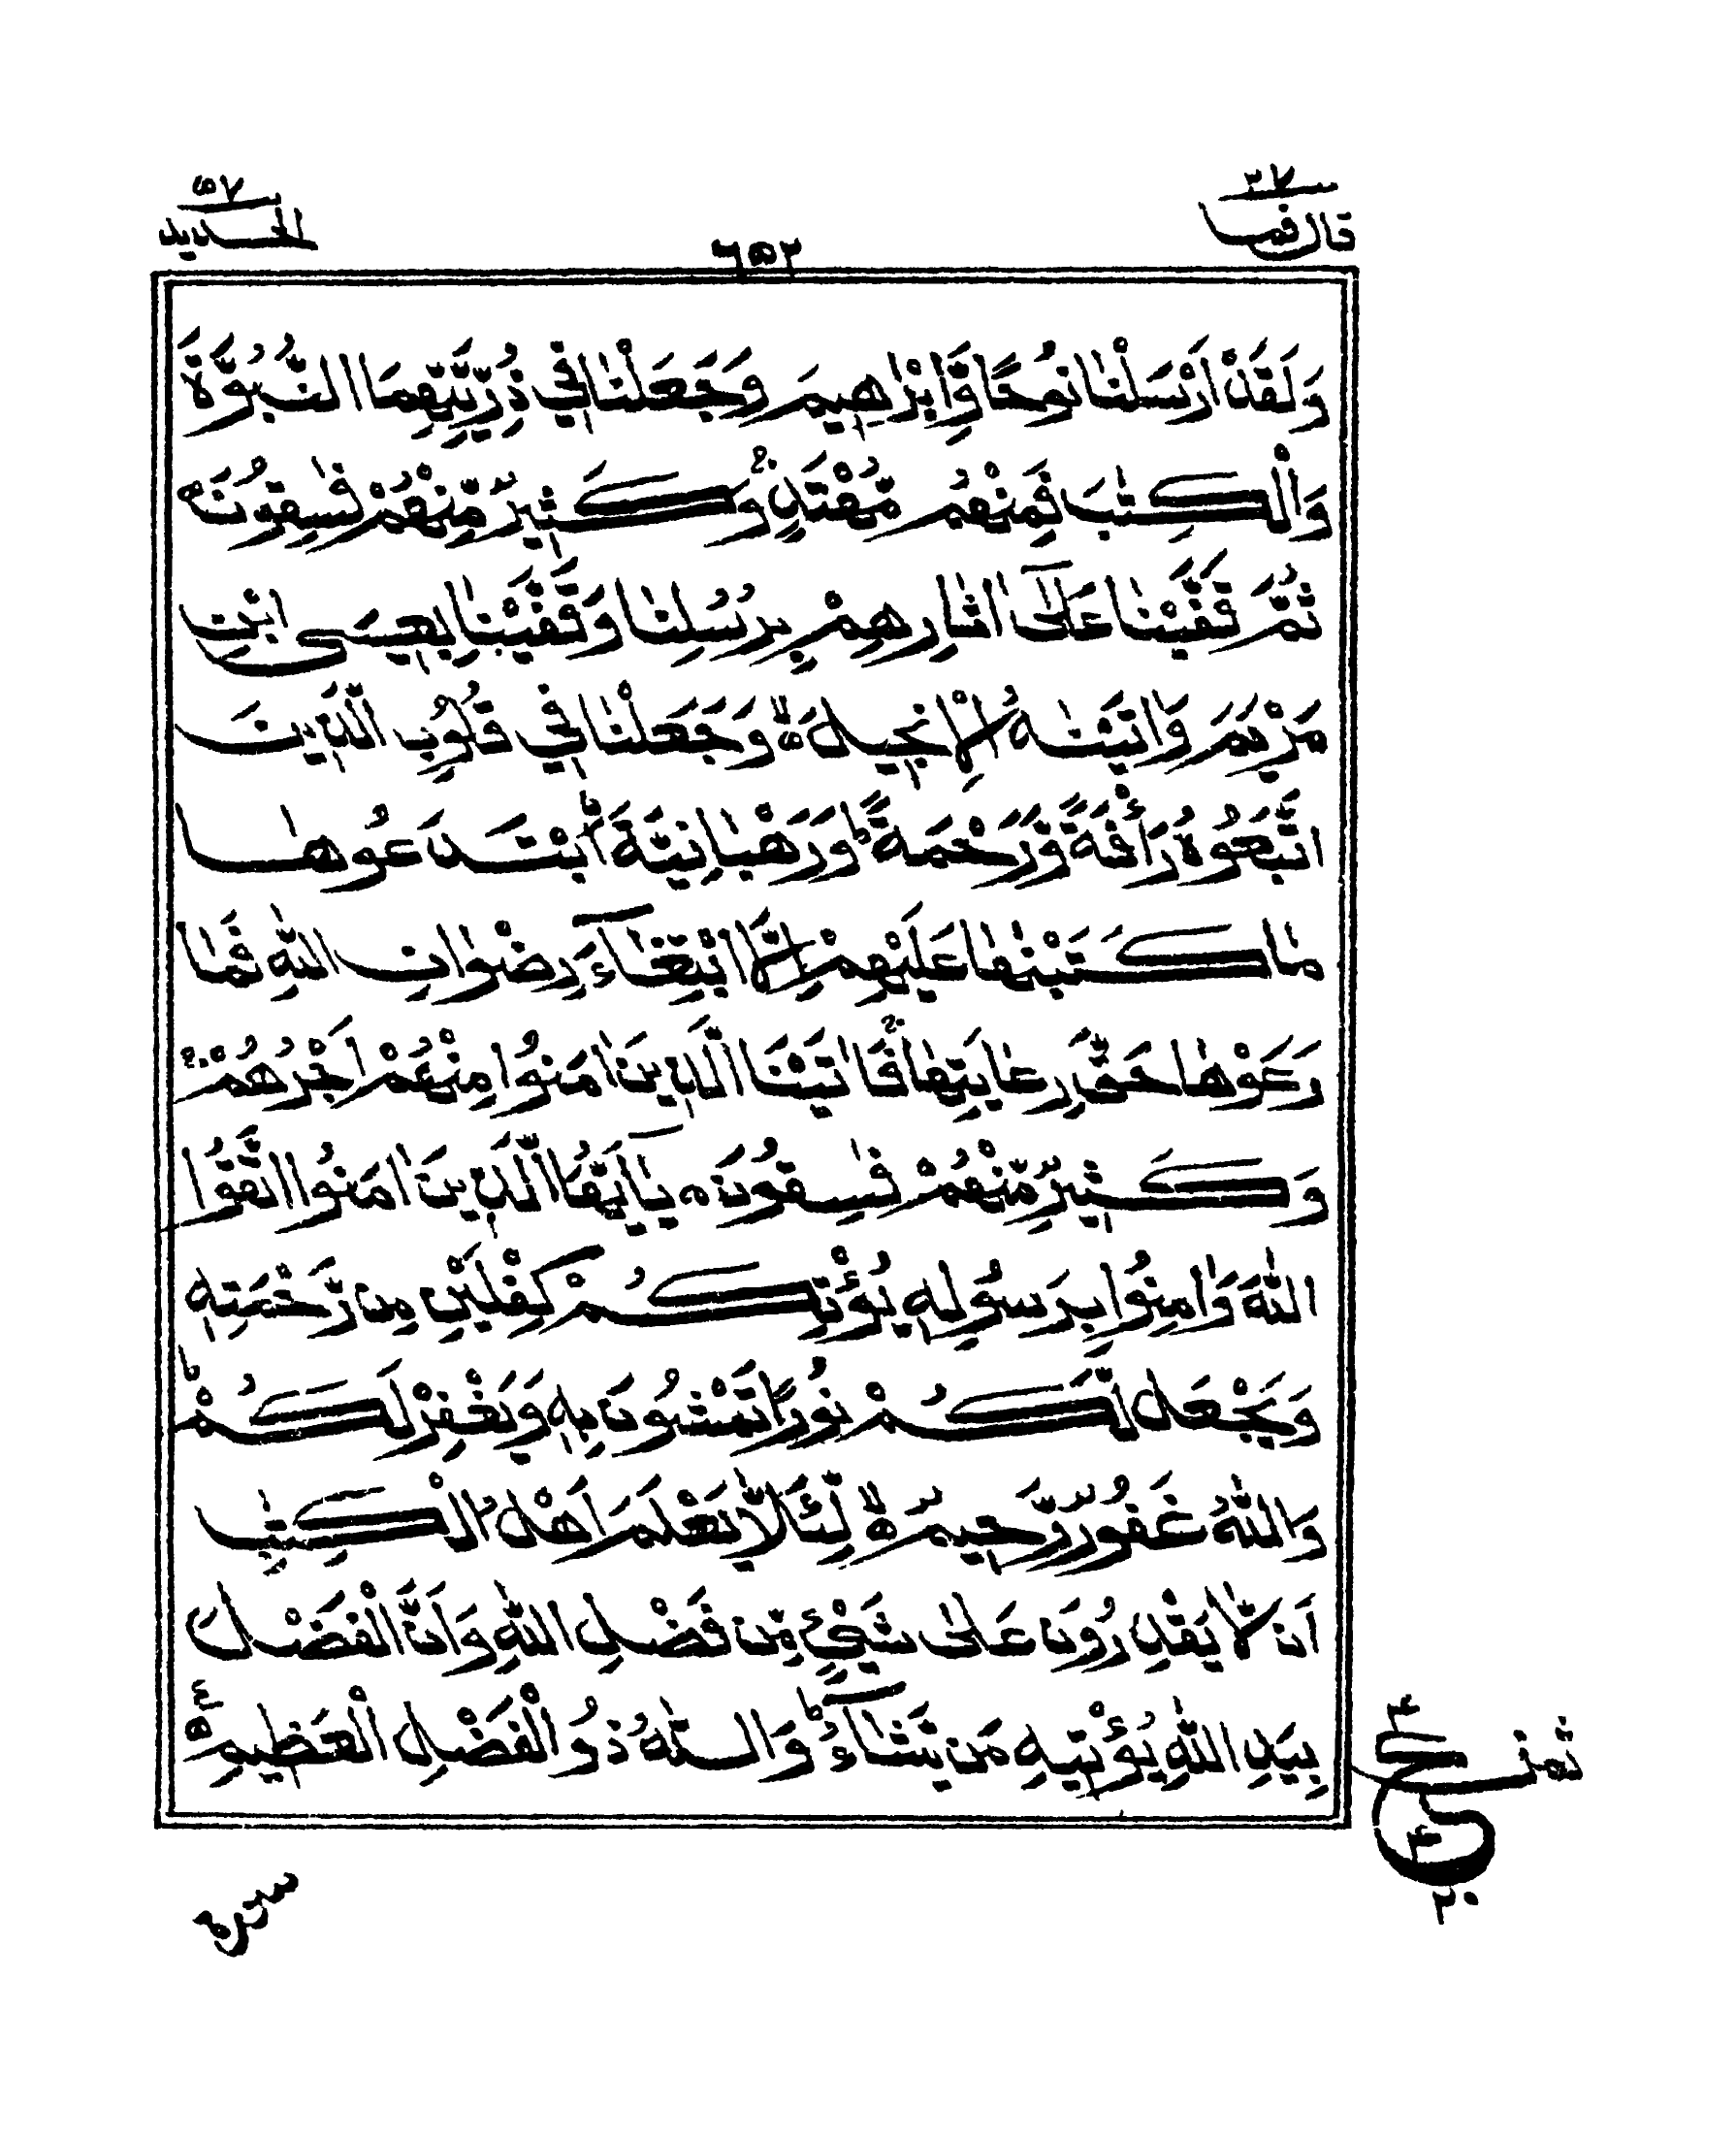 قال فما ٢٧
٦٥٢
الحديد ٥٧
وَلَقَدْ اَرْسَلْنَا نُوْحًا وَّاِبْرٰهِيْمَ وَجَعَلْنَا فِيْ ذُرِّيَّتِهِمَا النُّبُوَّةَ
وَالْكِتٰبَ فَمِنْهُمْ مُّهْتَدٍ ۚ وَكَثِيْرٌ مِّنْهُمْ فٰسِقُوْنَ ۝
ثُمَّ قَفَّيْنَا عَلٰٓى اٰثَارِهِمْ بِرُسُلِنَا وَقَفَّيْنَا بِعِيْسَى ابْنِ
مَرْيَمَ وَاٰتَيْنٰهُ الْاِنْجِيْلَ ۙ وَجَعَلْنَا فِيْ قُلُوْبِ الَّذِيْنَ
اتَّبَعُوْهُ رَاْفَةً وَّرَحْمَةً ؕ وَرَهْبَانِيَّةَ اِ۟بْتَدَعُوْهَا
مَا كَتَبْنٰهَا عَلَيْهِمْ اِلَّا ابْتِغَآءَ رِضْوَانِ اللّٰهِ فَمَا
رَعَوْهَا حَقَّ رِعَايَتِهَا ۚ فَاٰتَيْنَا الَّذِيْنَ اٰمَنُوْا مِنْهُمْ اَجْرَهُمْ ۚ
وَكَثِيْرٌ مِّنْهُمْ فٰسِقُوْنَ ۝ يٰٓاَيُّهَا الَّذِيْنَ اٰمَنُوا اتَّقُوا
اللّٰهَ وَاٰمِنُوْا بِرَسُوْلِهٖ يُؤْتِكُمْ كِفْلَيْنِ مِنْ رَّحْمَتِهٖ
وَيَجْعَلْ لَّكُمْ نُوْرًا تَمْشُوْنَ بِهٖ وَيَغْفِرْ لَكُمْ ؕ
وَاللّٰهُ غَفُوْرٌ رَّحِيْمٌ ۙ۝ لِّئَلَّا يَعْلَمَ اَهْلُ الْكِتٰبِ
اَنْ لَّا يَقْدِرُوْنَ عَلٰى شَيْءٍ مِّنْ فَضْلِ اللّٰهِ وَاَنَّ الْفَضْلَ
بِيَدِ اللّٰهِ يُؤْتِيْهِ مَنْ يَّشَآءُ ؕ وَاللّٰهُ ذُو الْفَضْلِ الْعَظِيْمِ ۝
ع
٢٠